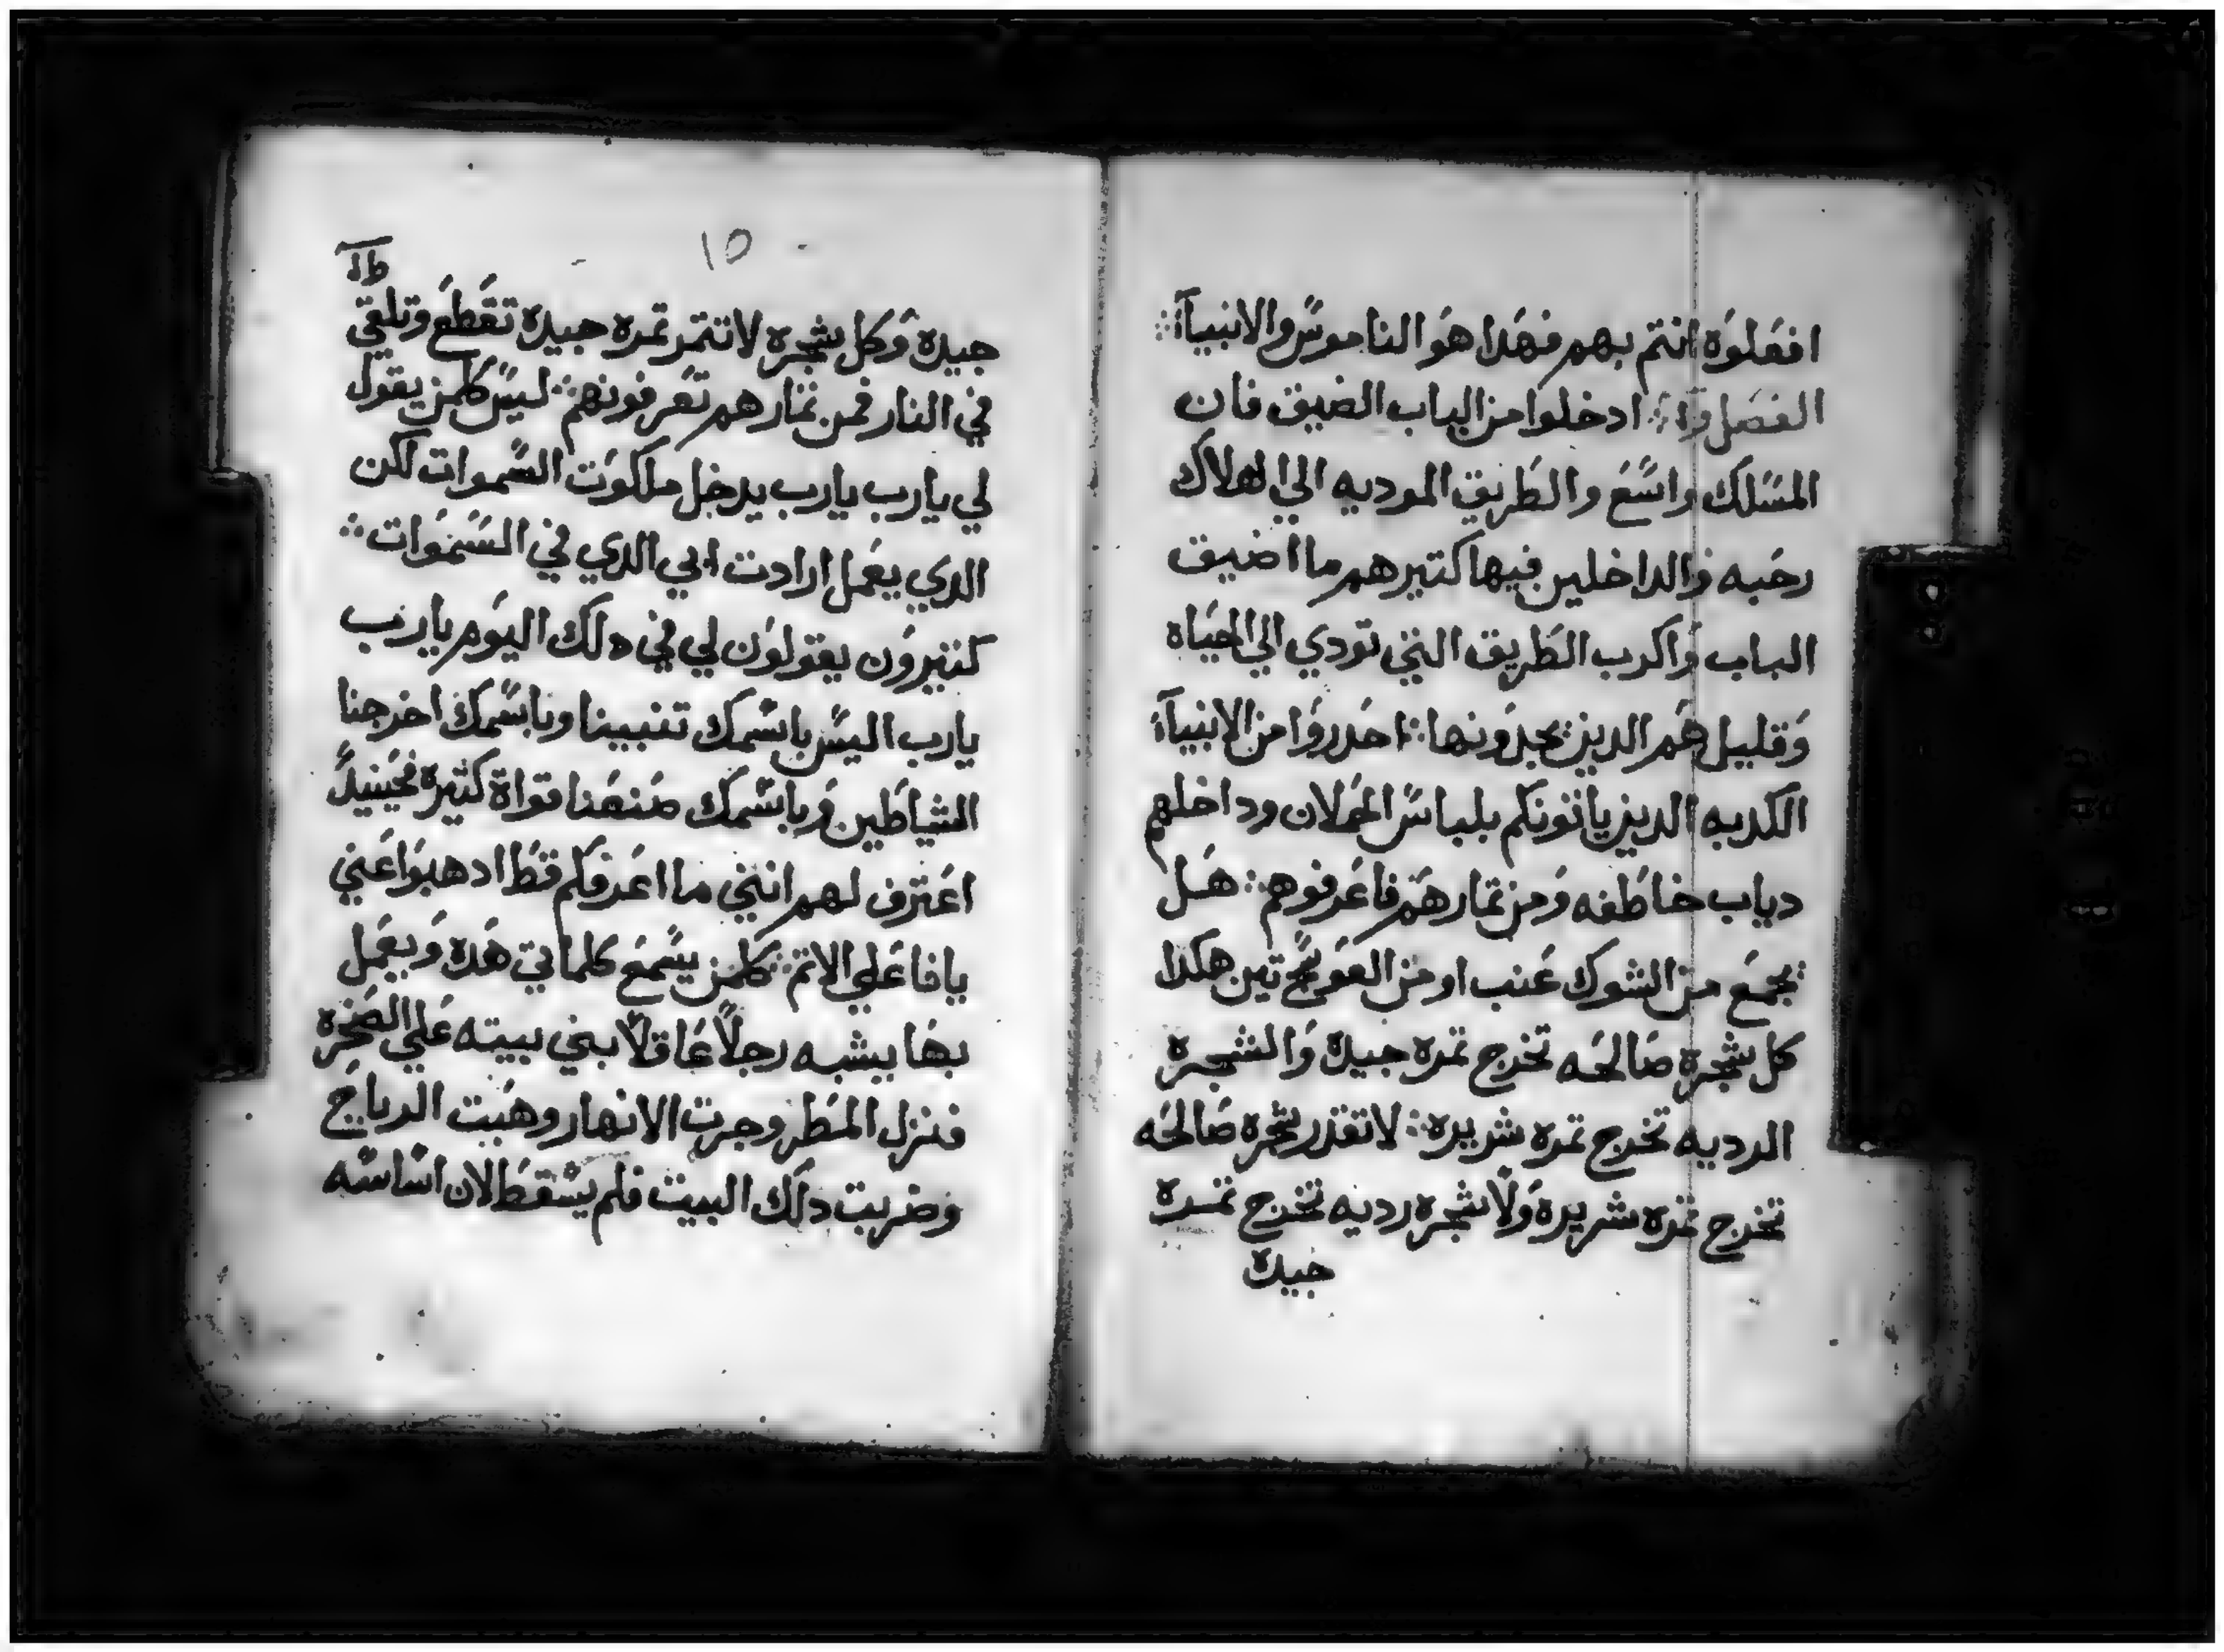 افعلوه انتم بهم فهدا هو الناموس والانبيآء ⁘
الفصل ⁘ ادخلوا من الباب الضيق فان
المسلك واسع والطريق الموديه الي الهلاك
رحبه والداخلين فيها كتير هم ما اضيق
الباب واكرب الطريق التي تودي الي الحياه
وقليل هم الدين يجدونها ⁘ احدروا من الانبيآء
الكدبه الدين ياتونكم بلباس الحملان وداخلهم
دياب خاطفه ومن تمارهم فاعرفوهم ⁘ هل
يجمع من الشوك عنب او من العوسج تين هكدا
كل شجره صالحه تخرج تمره جيده والشجره
الرديه تخرج تمره شريره ⁘ لا تقدر شجره صالحه
تخرج تمره شريره ولا شجره رديه تخرج تمره
جيده
١٥
جيده وكل شجره لا تتمر تمره جيده تقطع وتلقي
في النار فمن تمارهم تعرفونهم ⁘ ليس كلمن يقول
لي يارب يارب يدخل ملكوت السموات لكن
الدي يعمل ارادت ابي الدي في السموات ⁘
كتيرون يقولون لي في دلك اليوم يارب
يارب اليس باسمك تنبينا وباسمك اخرجنا
الشياطين وباسمك صنعنا قواة كثيره فحينيدً
اعترف لهم انني ما اعرفكم قط ادهبوا عني
يافاعلي الاتم ⁘ كلمن يسمع كلماتي هده ويعمل
بها يشبه رجلاً عاقلاً بني بيته علي الصخره
فنزل المطر وجرت الانهار وهبت الرياح
وضربت دلك البيت فلم يسقط لان اساسه